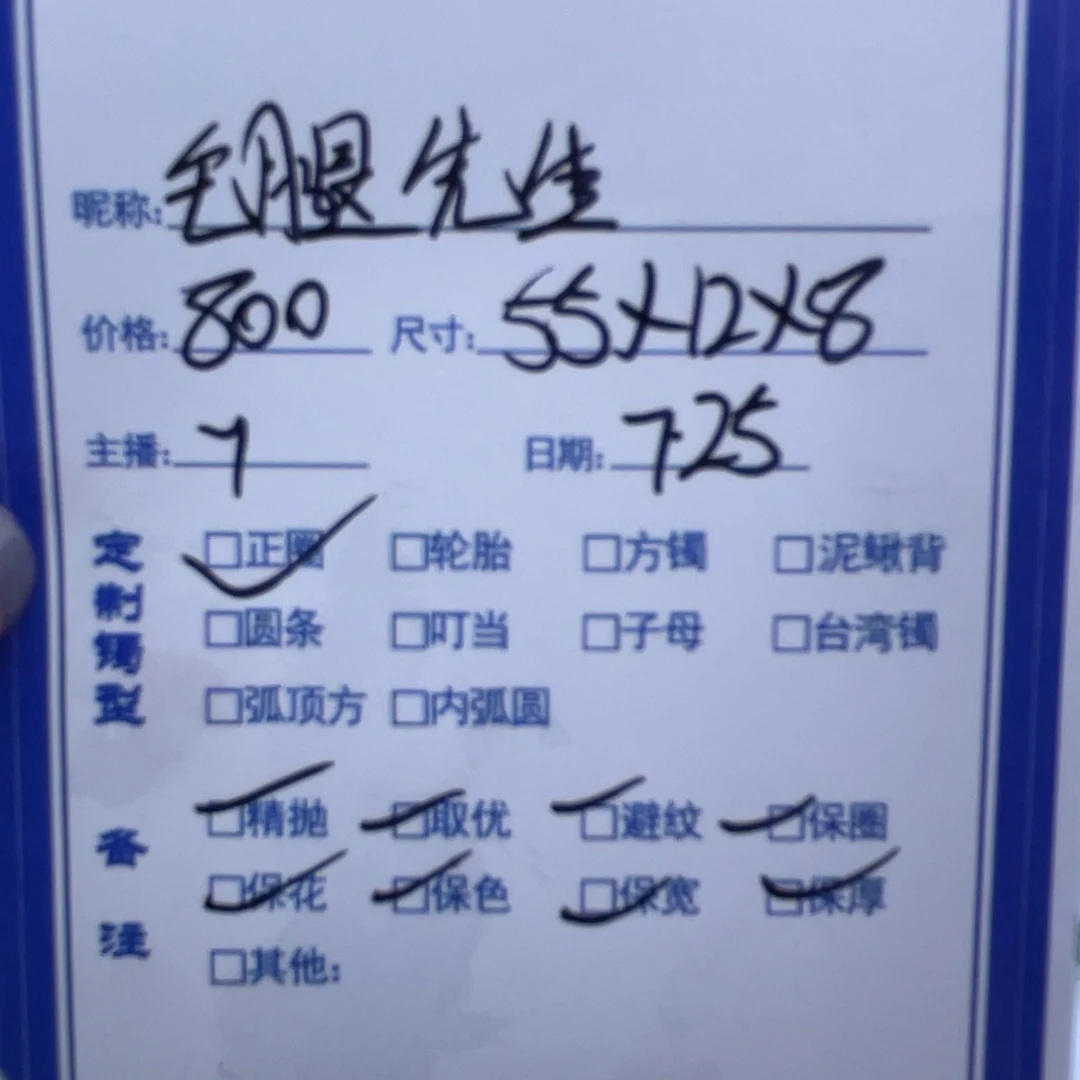 昵称:毛腿先生
价格:800 尺寸:55×12×8
主播:7 日期:7.25
定制镯型
☑正圈 □轮胎 □方镯 □泥鳅背
□圆条 □叮当 □子母 □台湾镯
□弧顶方 □内弧圆
备注
☑精抛 ☑取优 ☑避纹 ☑保圈
☑保花 ☑保色 ☑保宽 ☑保厚
□其他: